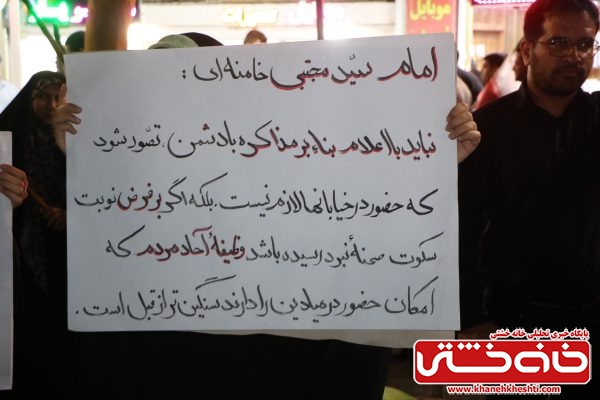 موبایل
امام سیّد مجتبی خامنه‌ای :
نباید با اعلام بناء بر مذاکره با دشمن، تصّور شود
که حضور در خیابانها لازم نیست. بلکه اگر بر فرض نوبت
سکوت صحنهٔ نبرد رسیده باشد وظیفهٔ آحاد مردم که
امکان حضور در میادین را دارند سنگین تر از قبل است.
پایگاه خبری تحلیلی خانه خشتی
خانه خشتی
www.khanehkheshti.com